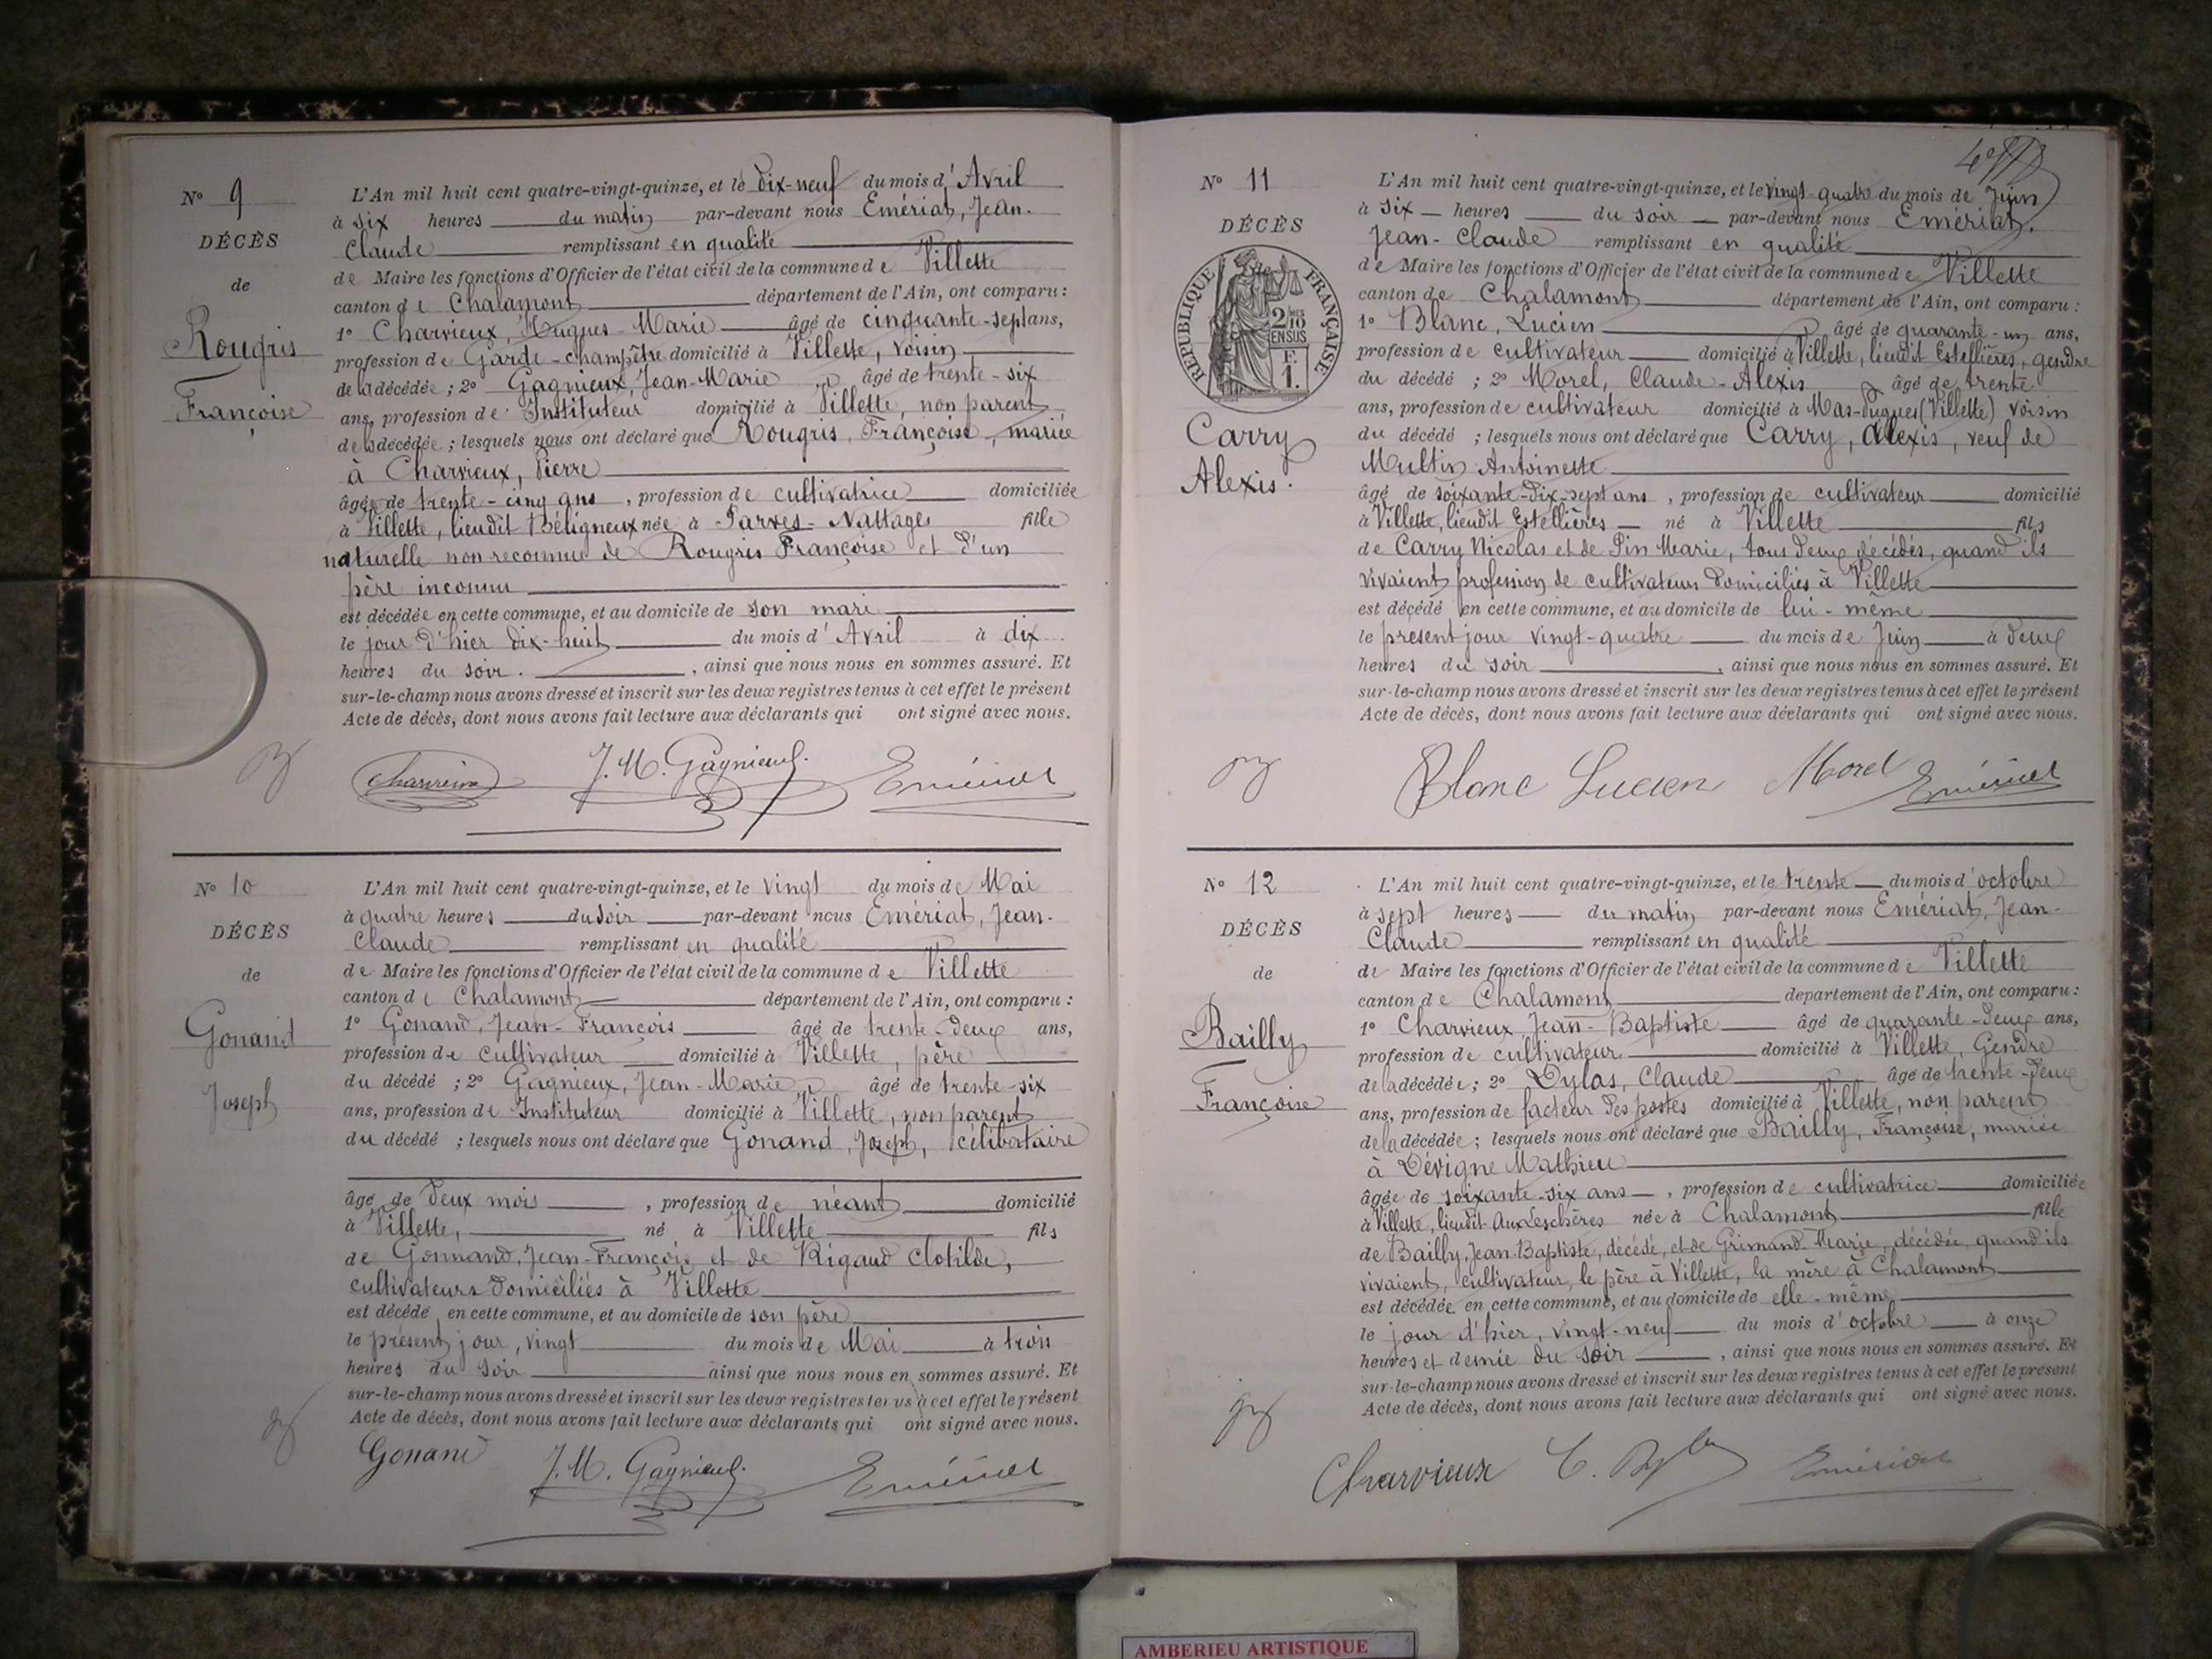 N° 9
DÉCÈS
de
Rougris
Françoise
L'An mil huit cent quatre-vingt-quinze, et le dix-neuf du mois d'Avril
à six heures du matin par-devant nous Emériat, Jean-
Claude remplissant en qualité
de Maire les fonctions d'Officier de l'état civil de la commune de Villette
canton de Chalamont département de l'Ain, ont comparu :
1° Charvieux, Hugues-Marie âgé de cinquante-sept ans,
profession de Garde-champêtre domicilié à Villette, voisin
de la décédée ; 2° Gagnieux, Jean-Marie âgé de trente-six
ans, profession de Instituteur domicilié à Villette, non parent
de la décédée ; lesquels nous ont déclaré que Rougris, Françoise, mariée
à Charvieux, Pierre
âgée de trente-cinq ans, profession de cultivatrice domiciliée
à Villette, lieudit Béligneux née à Parves-Nattages fille
naturelle non reconnue de Rougris Françoise et d'un
père inconnu
est décédée en cette commune, et au domicile de son mari
le jour d'hier dix-huit du mois d'Avril à dix
heures du soir. , ainsi que nous nous en sommes assuré. Et
sur-le-champ nous avons dressé et inscrit sur les deux registres tenus à cet effet le présent
Acte de décès, dont nous avons fait lecture aux déclarants qui ont signé avec nous.
Charvieux J. M. Gagnieux. Emériat
N° 10
DÉCÈS
de
Gonand
Joseph
L'An mil huit cent quatre-vingt-quinze, et le vingt du mois de Mai
à quatre heures du soir par-devant nous Emériat, Jean-
Claude remplissant en qualité
de Maire les fonctions d'Officier de l'état civil de la commune de Villette
canton de Chalamont département de l'Ain, ont comparu :
1° Gonand, Jean-François âgé de trente-deux ans,
profession de cultivateur domicilié à Villette, père
du décédé ; 2° Gagnieux, Jean-Marie, âgé de trente-six
ans, profession de Instituteur domicilié à Villette, non parent
du décédé ; lesquels nous ont déclaré que Gonand, Joseph, célibataire
âgé de deux mois , profession de néant domicilié
à Villette, né à Villette fils
de Gonnand, Jean-François et de Rigaud Clotilde,
cultivateurs domiciliés à Villette
est décédé en cette commune, et au domicile de son père
le présent jour, vingt du mois de Mai à trois
heures du soir ainsi que nous nous en sommes assuré. Et
sur-le-champ nous avons dressé et inscrit sur les deux registres tenus à cet effet le présent
Acte de décès, dont nous avons fait lecture aux déclarants qui ont signé avec nous.
Gonand J. M. Gagnieux. Emériat
N° 11
DÉCÈS
RÉPUBLIQUE FRANÇAISE
2/10 EN SUS
F.
1.
Carry
Alexis.
L'An mil huit cent quatre-vingt-quinze, et le vingt-quatre du mois de Juin
à six heures du soir par-devant nous Emériat,
Jean-Claude remplissant en qualité
de Maire les fonctions d'Officier de l'état civil de la commune de Villette
canton de Chalamont département de l'Ain, ont comparu :
1° Blanc, Lucien âgé de quarante-un ans,
profession de cultivateur domicilié à Villette, lieudit Estellières, gendre
du décédé ; 2° Morel, Claude-Alexis âgé de trente
ans, profession de cultivateur domicilié à Mas-Dugues (Villette) voisin
du décédé ; lesquels nous ont déclaré que Carry, Alexis, veuf de
Multin Antoinette
âgé de soixante-dix-sept ans, profession de cultivateur domicilié
à Villette, lieudit Estellières né à Villette fils
de Carry Nicolas et de Pin Marie, tous deux décédés, quand ils
vivaient profession de cultivateurs domiciliés à Villette
est décédé en cette commune, et au domicile de lui-même
le présent jour vingt-quatre du mois de Juin à deux
heures du soir , ainsi que nous nous en sommes assuré. Et
sur-le-champ nous avons dressé et inscrit sur les deux registres tenus à cet effet le présent
Acte de décès, dont nous avons fait lecture aux déclarants qui ont signé avec nous.
Blanc Lucien Morel Emériat
N° 12
DÉCÈS
de
Bailly
Françoise
L'An mil huit cent quatre-vingt-quinze, et le trente du mois d'octobre
à sept heures du matin par-devant nous Emériat, Jean-
Claude remplissant en qualité
de Maire les fonctions d'Officier de l'état civil de la commune de Villette
canton de Chalamont département de l'Ain, ont comparu :
1° Charvieux, Jean-Baptiste âgé de quarante-deux ans,
profession de cultivateur domicilié à Villette, Gendre
de la décédée ; 2° Dylas, Claude âgé de trente-deux
ans, profession de facteur des postes domicilié à Villette, non parent
de la décédée ; lesquels nous ont déclaré que Bailly, Françoise, mariée
à Dévigne Mathieu
âgée de soixante-six ans , profession de cultivatrice domiciliée
à Villette, lieudit Aux Leschères née à Chalamont fille
de Bailly, Jean-Baptiste, décédé, et de Grimand Marie, décédée, quand ils
vivaient, cultivateur, le père à Villette, la mère à Chalamont
est décédée en cette commune, et au domicile de elle-même
le jour d'hier, vingt-neuf du mois d'octobre à onze
heures et demie du soir , ainsi que nous nous en sommes assuré. Et
sur-le-champ nous avons dressé et inscrit sur les deux registres tenus à cet effet le présent
Acte de décès, dont nous avons fait lecture aux déclarants qui ont signé avec nous.
Charvieux C. Dylas Emériat
AMBERIEU ARTISTIQUE